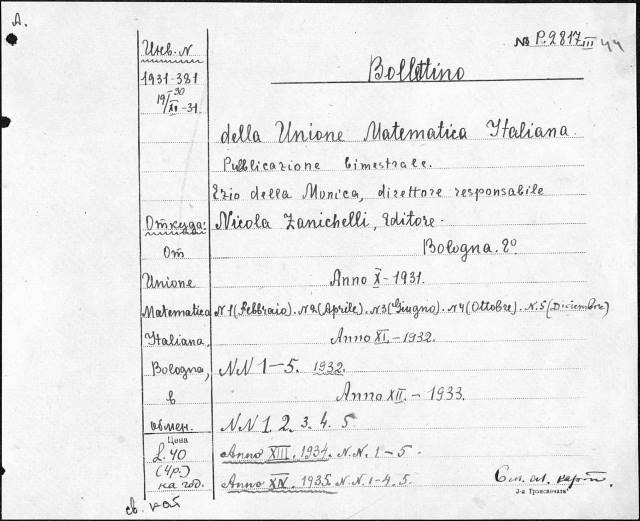 A.
№ P.2817 III 44
Инв. N
1931-381
Bollettino
della Unione Matematica Italiana.
Pubblicazione bimestrale.
Ezio della Monica, direttore responsabile
Откуда: Nicola Zanichelli, Editore.
От Bologna. 8º
Unione Anno X-1931.
Matematica N1(Febbraio). N2(Aprile). N3(Giugno). N4(Ottobre). N.5(Dicembre)
Italiana, Anno XI.-1932.
Bologna, NN 1-5. 1932.
в Anno XII.-1933.
обмен. NN 1. 2. 3. 4. 5
Цена
L. 40 Anno XIII. 1934. N.N. 1-5.
(4р.)
на год. Anno XIV. 1935. N.N. 1-4. 5.
См. сл. карт.
3-я Транспечати
св. кат